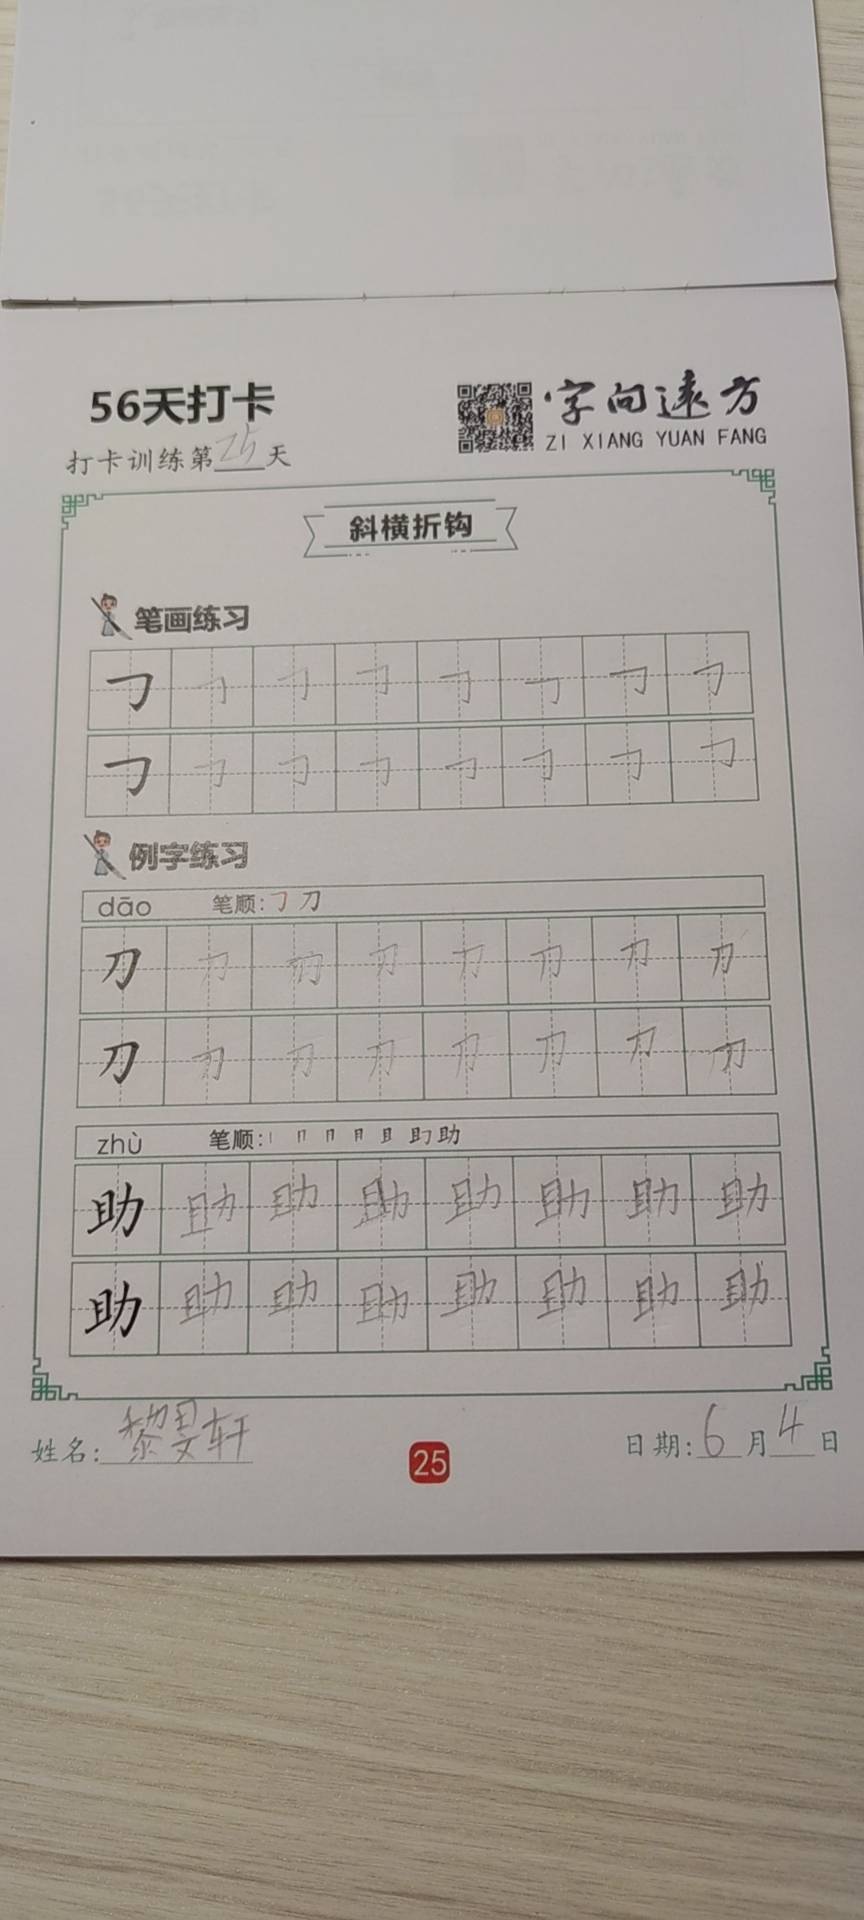 56天打卡
字向遠方
ZI XIANG YUAN FANG
打卡训练第25天
斜横折钩
笔画练习
㇆ ㇆ ㇆ ㇆ ㇆ ㇆ ㇆ ㇆
㇆ ㇆ ㇆ ㇆ ㇆ ㇆ ㇆ ㇆
例字练习
dāo 笔顺:㇆刀
刀 刀 刀 刀 刀 刀 刀 刀
刀 刀 刀 刀 刀 刀 刀 刀
zhù 笔顺: 助
助 助 助 助 助 助 助 助
助 助 助 助 助 助 助 助
姓名:黎旻轩
25
日期:6月4日